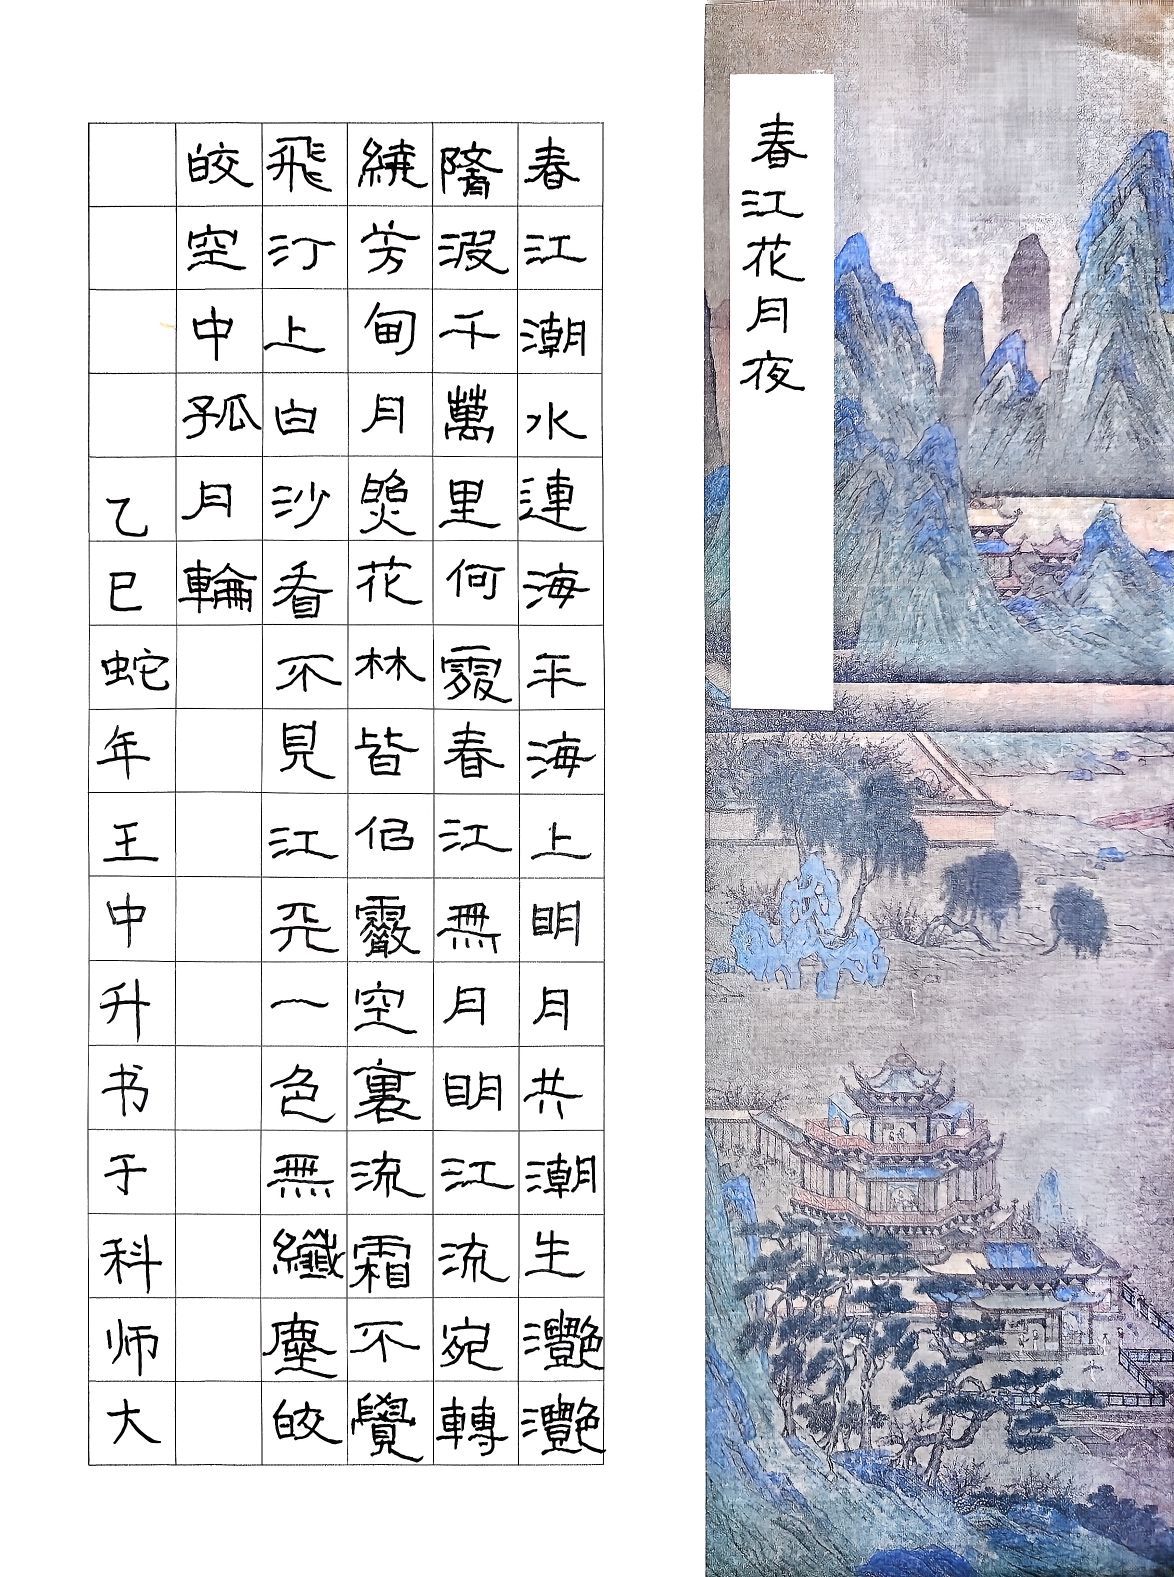 春江花月夜
春江潮水連海平海上明月共潮生灩灩
隨波千萬里何處春江無月明江流宛轉
繞芳甸月照花林皆似霰空裏流霜不覺
飛汀上白沙看不見江天一色無纖塵皎
皎空中孤月輪
乙巳蛇年王中升书于科师大